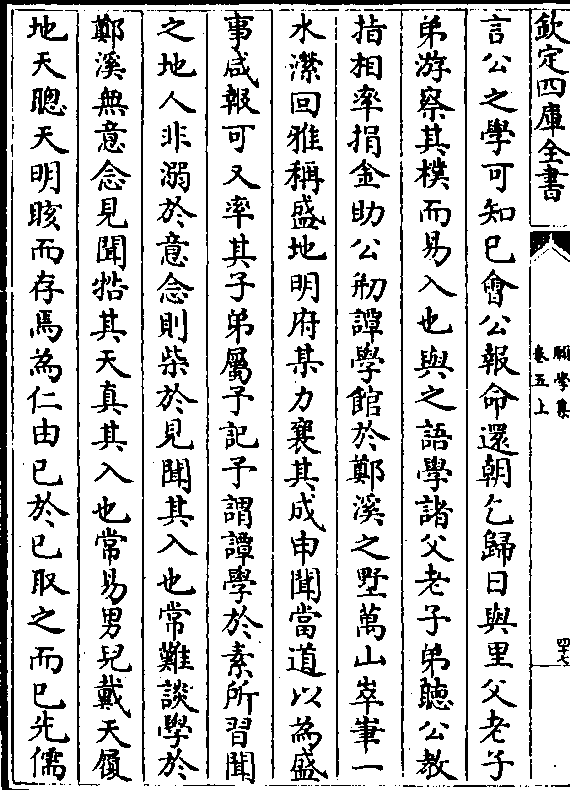 欽定四庫全書
願學集
卷五上
四十七
言公之學可知已會公報命還朝乞歸日與里父老子
弟游察其樸而易入也與之語學諸父老子弟聽公教
指相率捐金助公刱譚學館於鄭溪之墅萬山崒崋一
水瀠回雅稱盛地明府某力襄其成申聞當道以為盛
事咸報可又率其子弟屬予記予謂譚學於素所習聞
之地人非溺於意念則柴於見聞其入也常難談學於
鄭溪無意念見聞牿其天真其入也常易男兒戴天履
地天聰天明晐而存焉為仁由已於已取之而已先儒